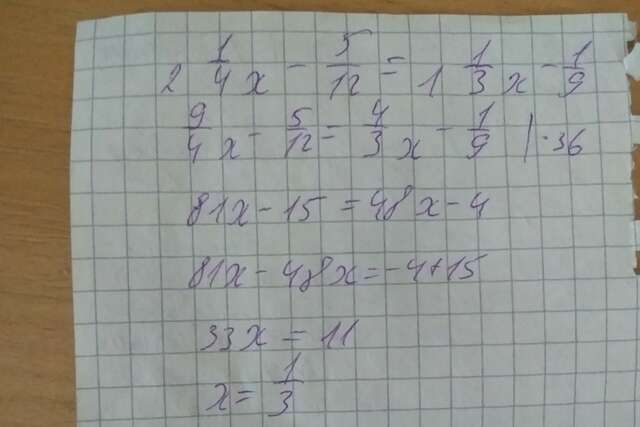 2 1/4 x - 5/12 = 1 1/3 x - 1/9
9/4 x - 5/12 = 4/3 x - 1/9 | · 36
81x - 15 = 48x - 4
81x - 48x = -4 + 15
33x = 11
x = 1/3